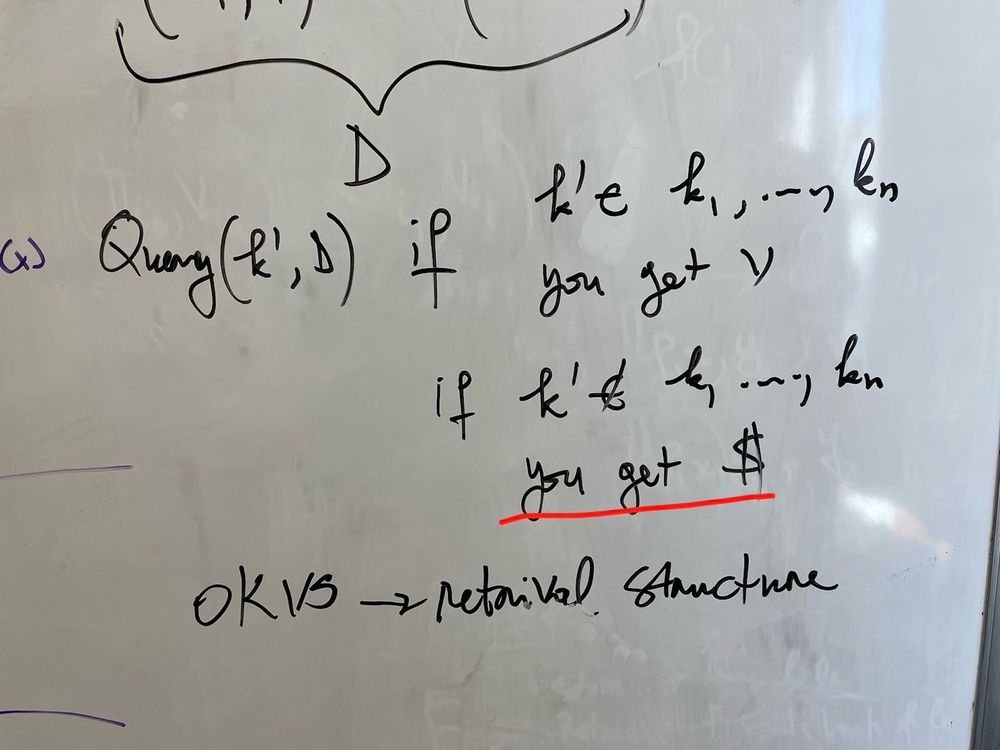 D
(x) Query(k', D) if k' ∈ k₁, ..., kₙ
you get v
if k' ∉ k, ..., kₙ
you get $
OKVS → retrival structure